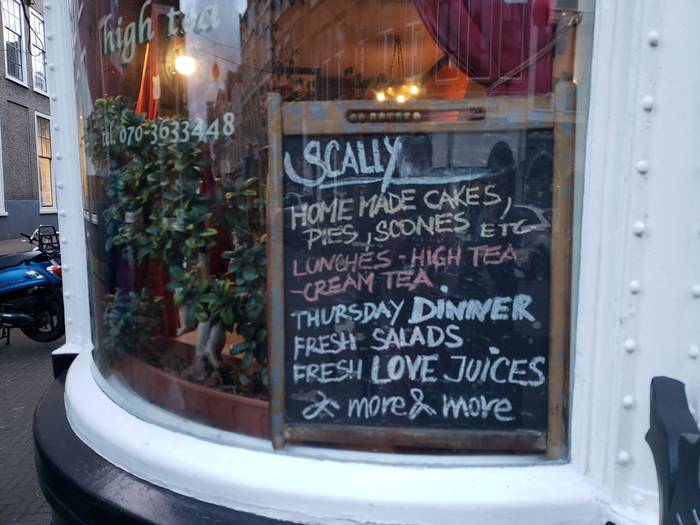 high tea
tel. 070-3633448
SCALLY
HOME MADE CAKES,
PIES, SCONES ETC
LUNCHES - HIGH TEA
- CREAM TEA
THURSDAY DINNER
FRESH SALADS
FRESH LOVE JUICES
& more & more